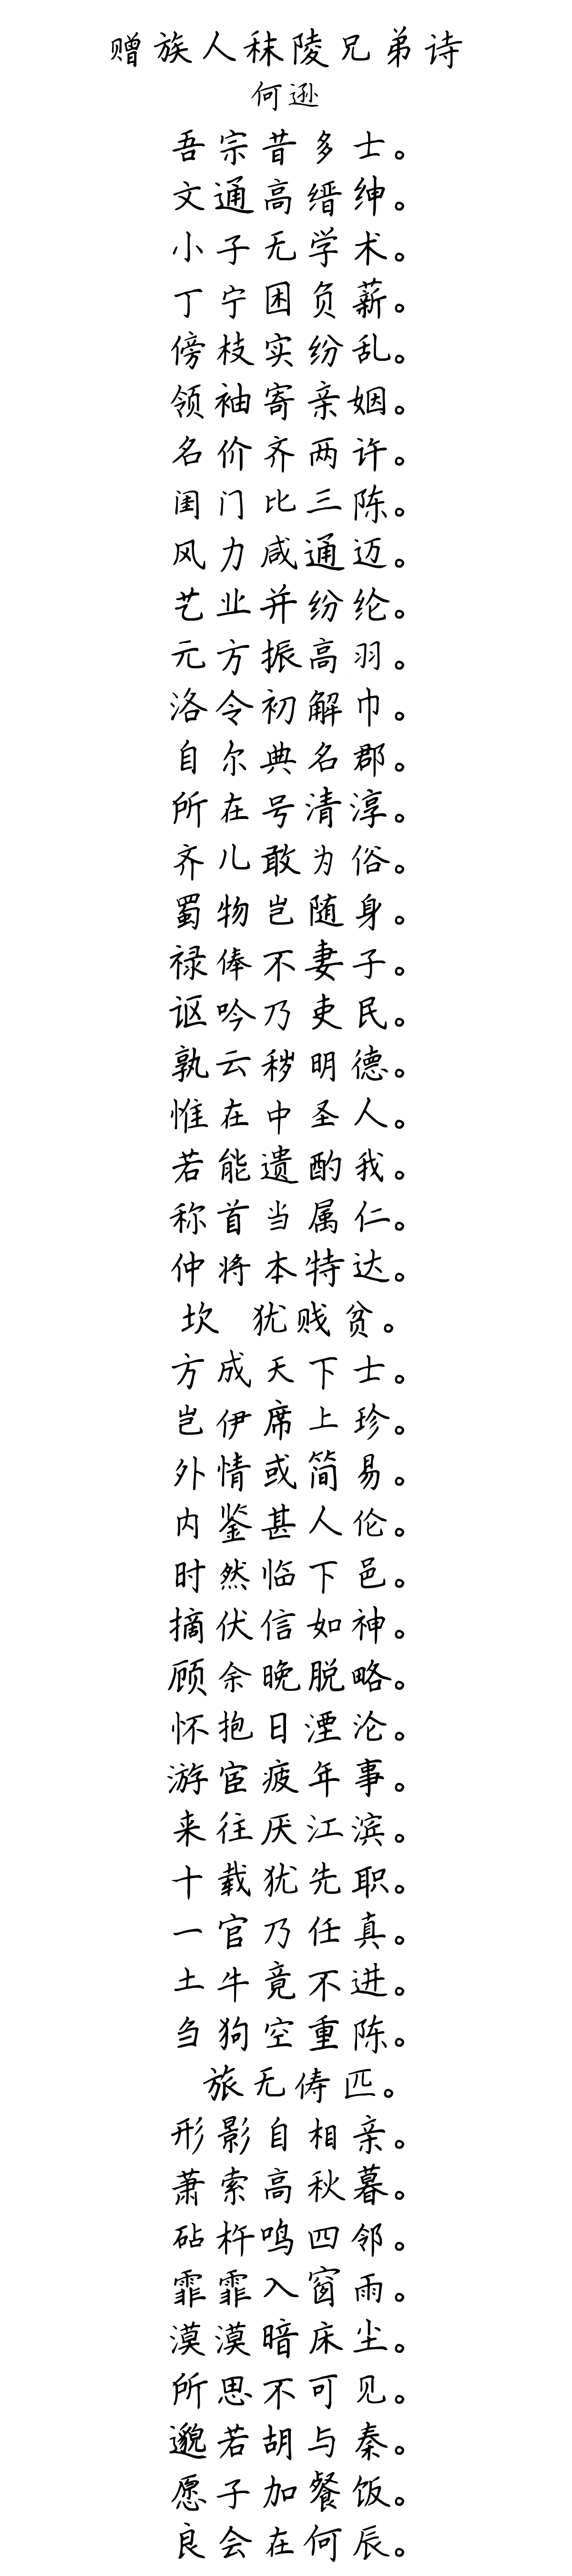 赠族人秣陵兄弟诗
何逊
吾宗昔多士。
文通高缙绅。
小子无学术。
丁宁困负薪。
傍枝实纷乱。
领袖寄亲姻。
名价齐两许。
闺门比三陈。
风力咸通迈。
艺业并纷纶。
元方振高羽。
洛令初解巾。
自尔典名郡。
所在号清淳。
齐儿敢为俗。
蜀物岂随身。
禄俸不妻子。
讴吟乃吏民。
孰云秽明德。
惟在中圣人。
若能遗酌我。
称首当属仁。
仲将本特达。
坎 犹贱贫。
方成天下士。
岂伊席上珍。
外情或简易。
内鉴甚人伦。
时然临下邑。
摘伏信如神。
顾余晚脱略。
怀抱日湮沦。
游宦疲年事。
来往厌江滨。
十载犹先职。
一官乃任真。
土牛竟不进。
刍狗空重陈。
旅无俦匹。
形影自相亲。
萧索高秋暮。
砧杵鸣四邻。
霏霏入窗雨。
漠漠暗床尘。
所思不可见。
邈若胡与秦。
愿子加餐饭。
良会在何辰。